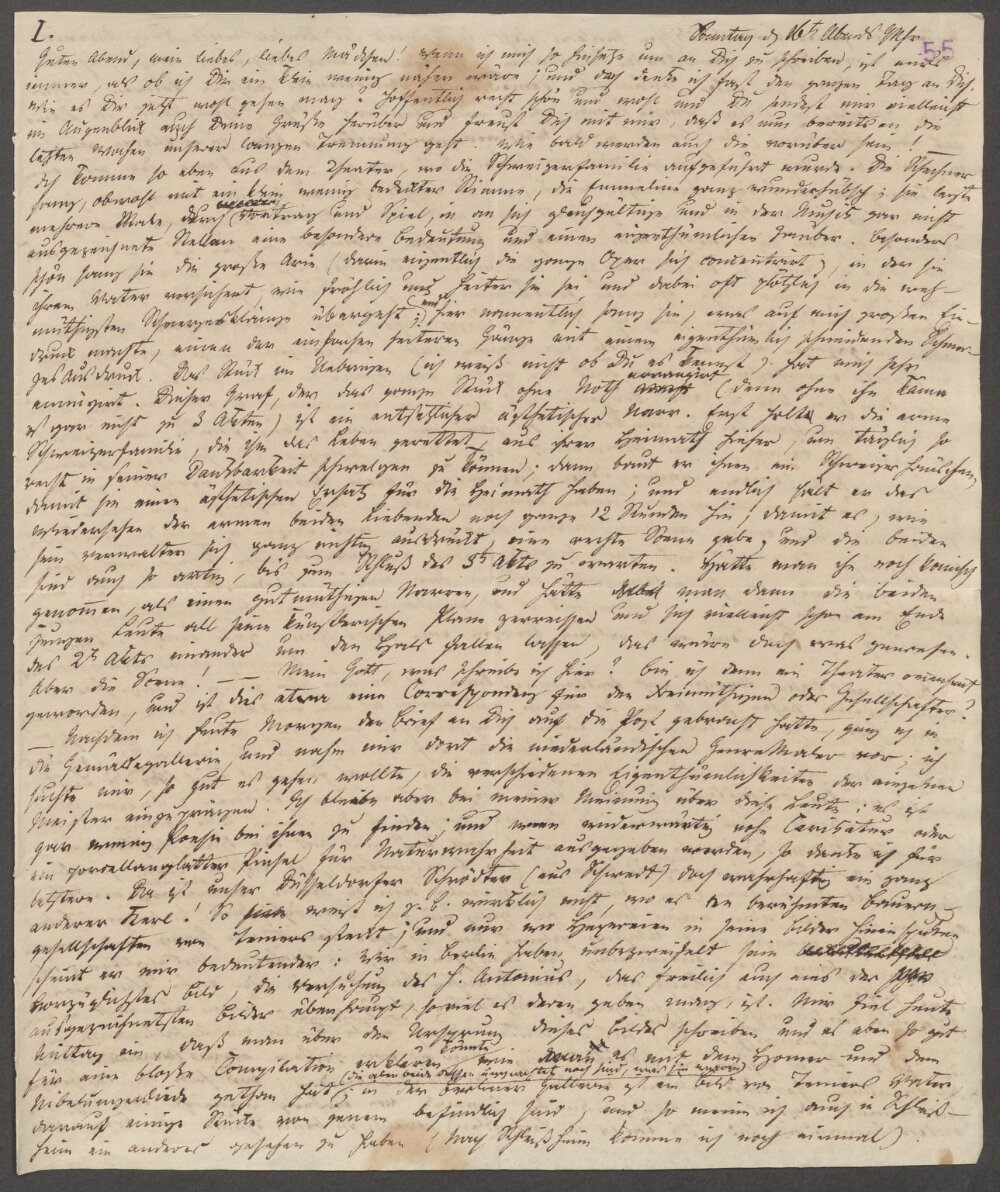 I.
Sonntag d 16t Abends 9 Uhr.
55
Guten Abend, mein liebes, liebes Mädchen! Wenn ich mich so hinsetze um an Dich zu schreiben, ist mir's
immer, als ob ich Dir ein klein wenig näher wäre; und doch denke ich fast den ganzen Tag an Dich.
Wie es Dir jetzt wohl gehen mag? Hoffentlich recht schön und wohl und Du sendest mir vielleicht
im Augenblick auch Deine Grüße herüber und freust Dich mit mir, daß es nun bereits an die
letzten Wochen unserer langen Trennung geht. Wie bald werden auch die vorüber sein! —
Ich komme so eben aus dem Theater, wo die Schweizerfamilie aufgeführt wurde. Die Schechner
sang, obwohl mit ein klein wenig bedeckter Stimme, die Emmeline ganz wunderhübsch; sie legte
mehrere Male, durch Vortrag und Spiel, in an sich gleichgültige und in der Musik gar nicht
ausgezeichnete Stellen eine besondere Bedeutung und einen eigenthümlichen Zauber. Besonders
schön sang sie die große Arie (darin eigentlich die ganze Oper sich concentrirt), in der sie
ihrem Vater versichert wie fröhlich und heiter sie sei und dabei oft plötzlich in die weh-
müthigsten Schmerzensklänge übergeht; und hier namentlich sang sie, was auf mich großen Ein-
druck machte, einen der einfachen heiteren Gänge mit einem eigenthümlich schneidenden Schmer-
zesausdruck. Das Stück im Uebrigen (ich weiß nicht ob Du es kennst) hat mich sehr
ennuyirt. Dieser Graf, der das ganze Stück ohne Noth arrangirt (denn ohne ihn käme
es gar nicht zu 3 Akten) ist ein entsetzlicher ästhetischer Narr. Erst holte er die arme
Schweizerfamilie, die ihm das Leben gerettet, aus ihrer Heimath hieher, um täglich so
recht in seiner Dankbarkeit schwelgen zu können; dann baut er ihnen ein Schweizerhäuschen,
damit sie einen ästhetischen Ersatz für die Heimath haben; und endlich hält er das
Wiedersehen der armen beiden Liebenden noch ganze 12 Stunden hin, damit es, wie
sein Verwalter sich ganz richtig ausdrückt, eine rechte Scene gebe, und die beiden
sind auch so artig, bis zum Schluß des 3t Akts zu warten. Hätte man ihn noch komisch
genommen, als einen gutmüthigen Narren, und hätte man dann die beiden
jungen Leute all seine künstlerischen Pläne zerreissen und sich vielleicht schon am Ende
des 2t Akts einander um den Hals fallen lassen, das wäre doch was gewesen.
Aber die Scene! — — Mein Gott, was schreibe ich hier? Bin ich denn ein Theater
geworden, und ist dies etwa eine Correspondenz für den Freimüthigen oder Gesellschafter?
— Nachdem ich heute Morgen den Brief an Dich auf die Post gebracht hatte, ging ich in
die Gemäldegallerie und nahm mir dort die niederländischen Genremaler vor; ich
suchte mir so gut es gehen wollte, die verschiedenen Eigenthümlichkeiten der einzelnen
Meister einzuprägen. Ich bleibe aber bei meiner Meinung über diese Leute: es ist
gar wenig Poesie bei ihnen zu finden; und wenn widerwärtig rohe Caricatur oder
ein porcellanglatter Pinsel für Naturwahrheit ausgegeben werden, so danke ich für
letztere. Da ist unser Düsseldorfer Schrödter (aus Schwedt) doch wahrhaftig ein ganz
anderer Kerl! So weiß ich z. B. wirklich nicht, wo es in den berühmten Bauern-
gesellschaften von Teniers steckt; und nur wo Hexereien in seine Bilder hineinspuken
scheint er mir bedeutender: wir in Berlin haben unbezweifelt sein
vorzüglichstes Bild, die Versuchung des h. Antonius, das freilich auch eins der
ausgezeichnetsten Bilder überhaupt, soviel es deren geben mag, ist. Mir fiel heute
Mittag ein, daß man über den Ursprung dieses Bildes schreiben und es eben so gut
für eine bloße Compilation erklären könnte wie man es mit dem Homer und dem
Nibelungenliede gethan hat, (die aber beide dessen ungeachtet noch sind, was sie waren) in der berliner Gallerie ist ein Bild von Teniers Vater
darauf einige Stücke von jenem befindlich sind, und so meine ich auch in Schleiß-
heim ein anderes gesehen zu haben (Nach Schleißheim komme ich noch einmal).